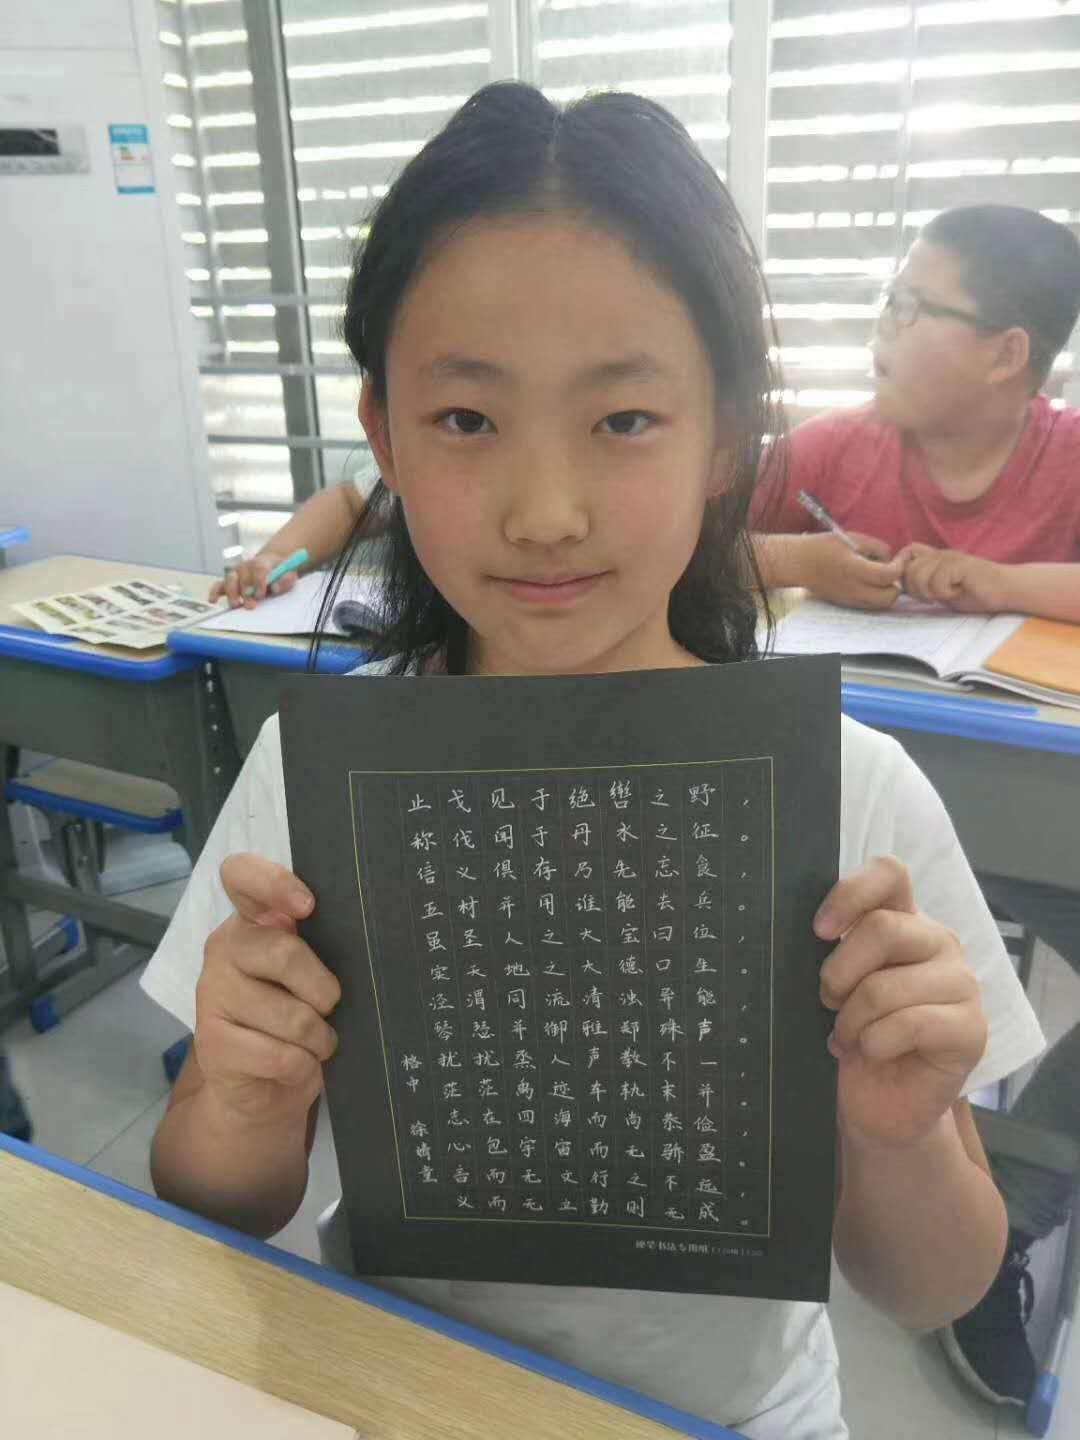 止戈见于绝辔之野，
称伐闻于丹水之征。
信义俱存乃先忘食，
五材并用谁能去兵。
虽圣人之大宝曰位，
实天地之大德曰生。
泾渭同流清浊异能，
琴瑟并御雅郑殊声。
扰扰烝人声教不一，
茫茫禹迹车轨未并。
志在四海而尚恭俭，
心包宇宙而无骄盈。
言而无文行之不远，
义而无立勤则无成。
格中 徐婧童
硬笔书法专用纸